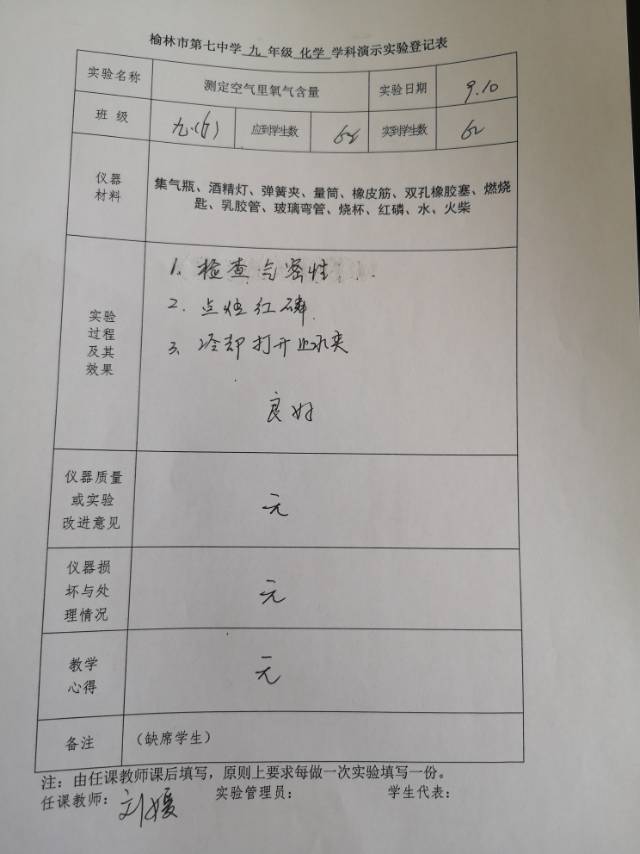 榆林市第七中学 九 年级 化学 学科演示实验登记表
实验名称 测定空气里氧气含量 实验日期 9.10
班 级 九.(6) 应到学生数 实到学生数 62
仪器
材料
集气瓶、酒精灯、弹簧夹、量筒、橡皮筋、双孔橡胶塞、燃烧
匙、乳胶管、玻璃弯管、烧杯、红磷、水、火柴
实验
过程
及其
效果
1. 检查气密性
2. 点燃红磷
3. 冷却打开止水夹
良好
仪器质量
或实验
改进意见
无
仪器损
坏与处
理情况
无
教学
心得
无
备注 (缺席学生)
注：由任课教师课后填写，原则上要求每做一次实验填写一份。
任课教师：刘媛 实验管理员： 学生代表：